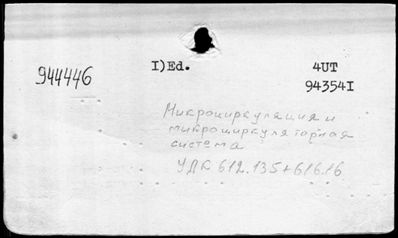 944446
I)Ed.
4UT
94354I
Микроциркуляция и
микроциркуляторная
система
УДК 612.135+616.16